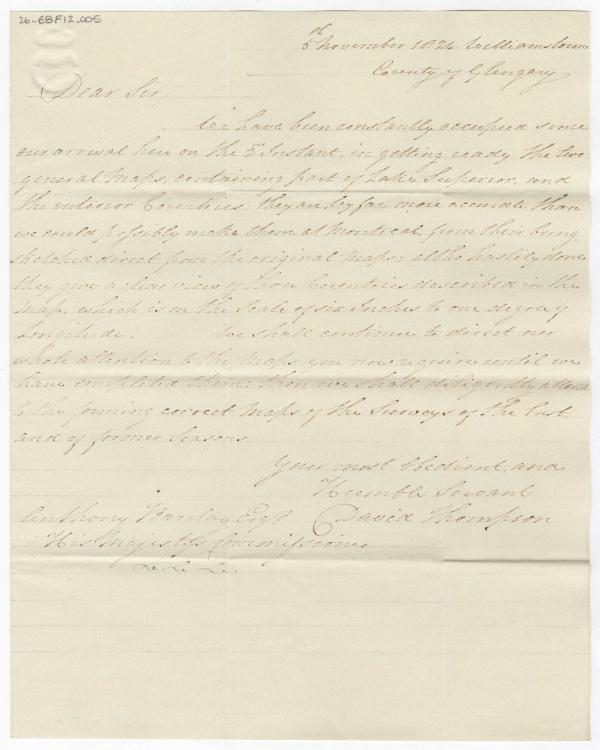 26-BBF12_005
5th November 1824 Williamstown
County of Glengary
Dear Sir,
We have been constantly occupied since
our arrival here on the 2d Instant, in getting ready the two
general Maps, containing part of Lake Superior, and
the interior Countries: they are by far more accurate than
we could possibly make them at Montreal from their being
sketched direct from the original Maps; altho hastily done
they give a clear view of those Countries described in the
Map, which is on the Scale of six Inches to one degree of
Longitude. We shall continue to direct our
whole attention to the Maps you now require until we
have completed them: then we shall diligently attend
to the forming correct Maps of the Surveys of the last
and of former Seasons.
Your most Obedient and
Humble Servant
Anthony Barclay Esqr David Thompson
His Majesty's Commissioner
&c &c &c